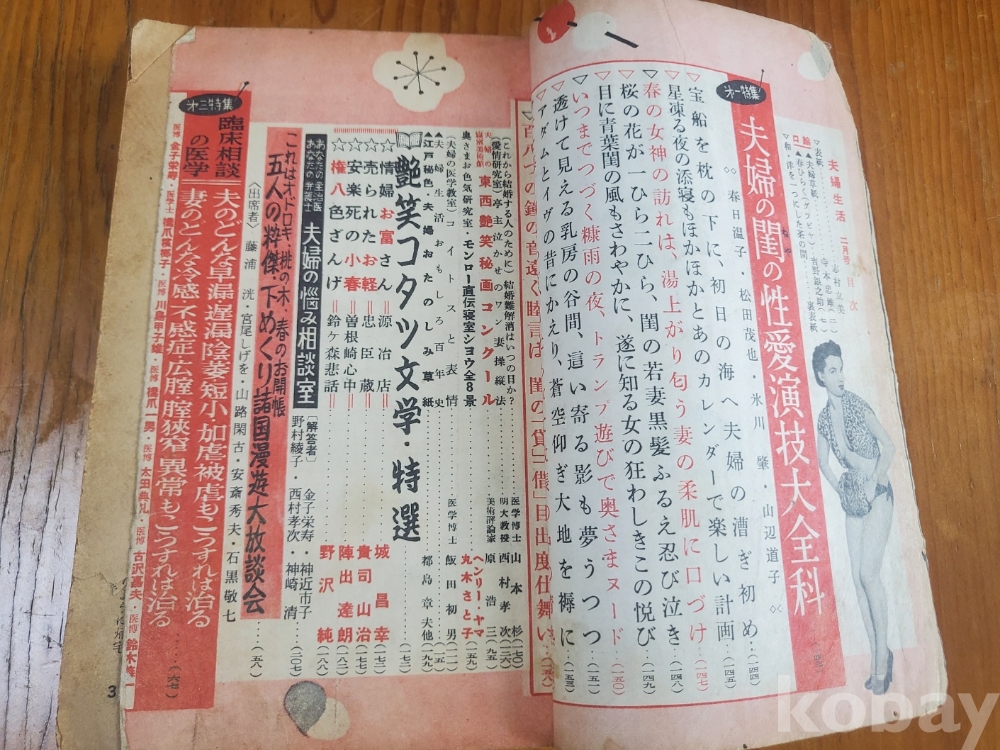 夫婦生活 二月号 目次
▽表紙
志村立美
口絵
▲夫婦草紙
寺本忠雄
▲春ひらく(グラビヤ)
▽和・洋を一つにした茶の間
裏表紙
オ一特集
夫婦の閨の性愛演技大全科
春日温子・松田茂也・氷川肇・山辺道子
▽宝船を枕の下に、初日の海へ夫婦の漕ぎ初め(一四四)
▽星凍る夜の添寝もほかほかとあのカレンダーで楽しい計画(一四五)
▽春の女神の訪れは、湯上がり匂う妻の柔肌に口づけ(一四七)
▽星凍る夜の
▽桜の花が一ひら二ひら、閨の若妻黒髪ふるえ忍び泣き(一四八)
▽目に青葉閨の風もさわやかに、遂に知る女の狂わしきこの悦び(一四九)
▽いつまでつづく糠雨の夜、トランプ遊びで奥さまヌード(一五〇)
▽透けて見える乳房の谷間、這い寄る影も夢うつつ(一五一)
▽アダムとイヴの昔にかえり、蒼空仰ぎ大地を褥に(一五三)
これから結婚する人のために
結婚難解消はいつの日か?
医学博士 山本杉(七〇)
(愛情研究室)亭主泣かせのワイ妻操縦法
明大教授 西村孝次(一二六)
夫婦の寝室美術館
東西艶笑秘画コンクール
美術評論家 原浩三(九五)
奥さまお色気研究室・モンロー直伝寝室ショウ全8景
ヘンリー・ヤマ
丸木さと子
(夫婦の医学教室)コイトスと表情
医学博士 飯田初男
▲夫婦生活しもろ百年史
▲江戸秘色・夫婦おたのしみ草紙
都島章夫他(九九)
艶笑コタツ文学・特選
☆情婦お富さん=源冶店=城昌幸(一七二)
☆売られたお軽=忠臣蔵=貴司山治
☆安楽死の小春=曽根崎心中=陣出達朗(一八二)
☆権八色ざんげ=鈴ヶ森悲話=野沢純(一八八)
あなたの主治医
あなたの弁護士
夫婦の悩み相談室
[解答者]
金子栄寿・神近市子
野村綾子・西村孝次・神崎清
(二〇七)
これはオドロキ、桃の木、春のお開帳
五人の粋傑・下めくり諸国漫遊大放談会
〈出席者〉藤浦洸・宮尾しげを・山路閑古・安斎秀夫・石黒敬七
(五八)
オ三特集
臨床相談の医学
夫のどんな早漏・遅漏・陰萎・短小・加虐被虐もこうすれば治る
妻のどんな冷感・不感症・広腟・腟狭窄・異常もこうすれば治る
医博 金子栄寿・医学士 橋爪檳榔子・川島専子娘・医博 橋爪一男・医博 太田典礼・医博 古沢嘉夫・医博
(六七)
3
kobay